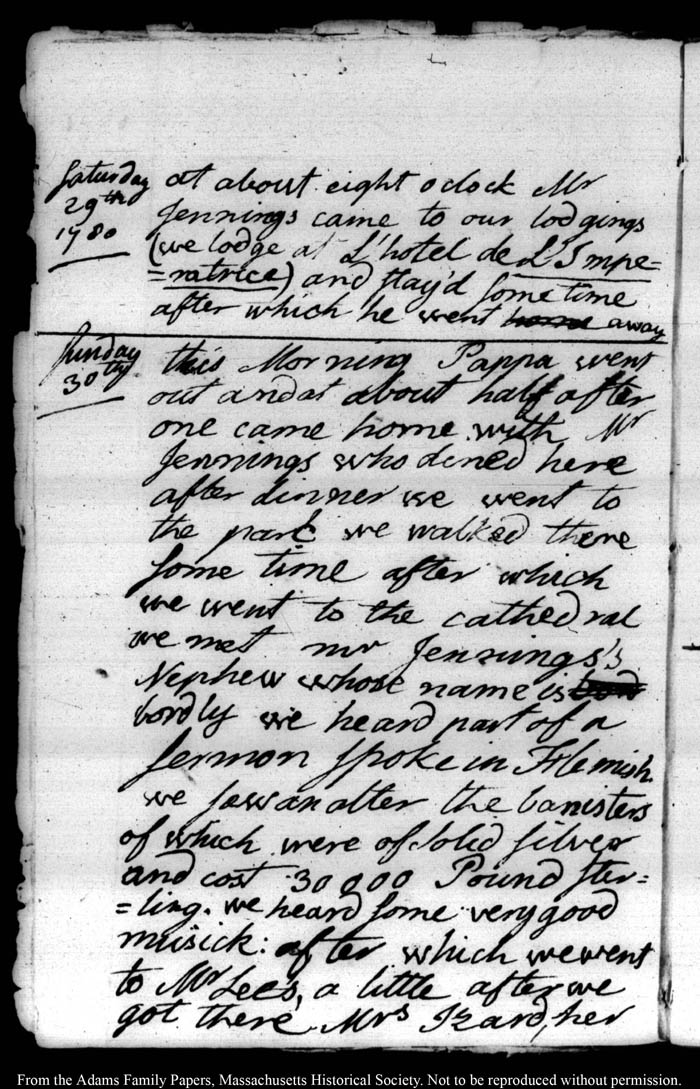 Saturday at about eight oclock Mr
29th Jennings came to our lodgings
1780 (we lodge at L'hotel de L'Impe=
=ratrice) and stay'd some time
after which he went home away
Sunday this Morning Pappa went
30th out and at about half after
one came home with Mr
Jennings who dined here
after dinner we went to
the park we walked there
some time after which
we went to the cathedral
we met mr Jennings's
Nephew whose name is
bordly we heard part of a
sermon spoke in Flemish
we saw an alter the banisters
of which were of solid silver
and cost 30000 Pound ster=
=ling. we heard some very good
musick: after which we went
to Mr Lee's, a little after we
got there Mrs Izard, her
From the Adams Family Papers, Massachusetts Historical Society. Not to be reproduced without permission.